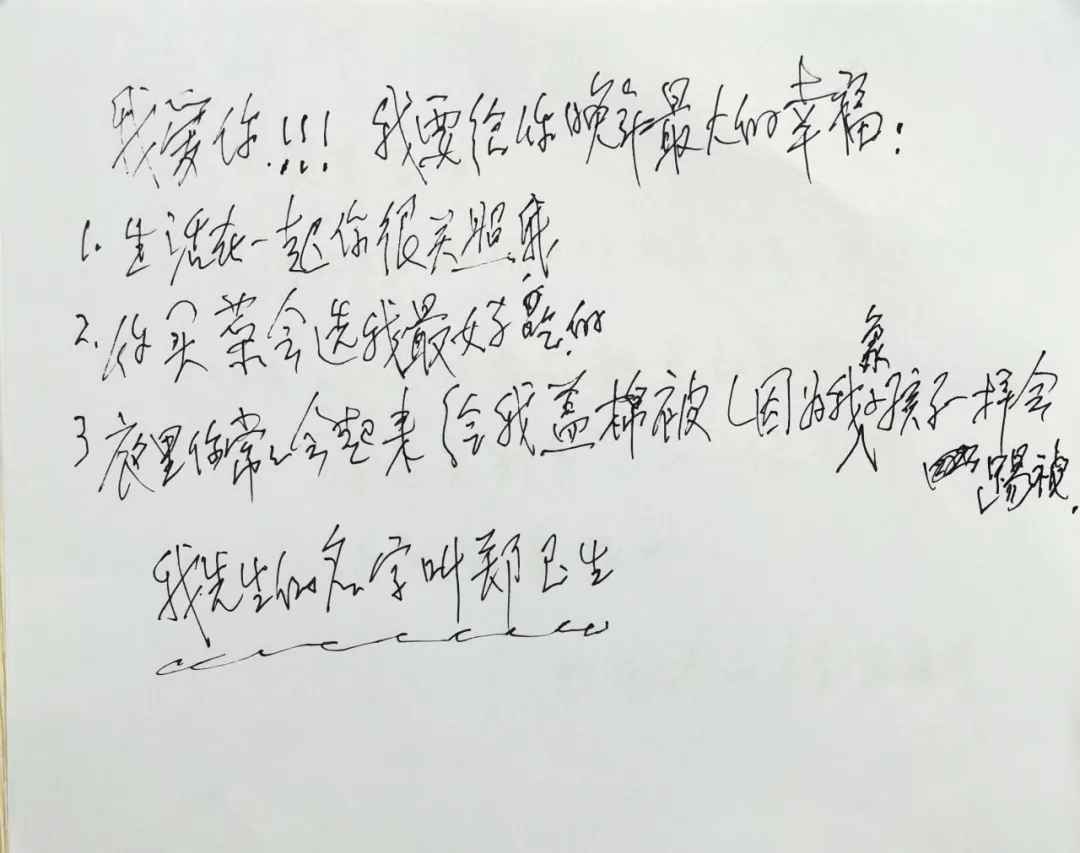 我爱你!!! 我要给你晚年最大的幸福!
1. 生活在一起你很关照我
2. 你买菜会选我最好吃的
3 夜里你常常会起来给我盖棉被(因为我像孩子一样会
踢被.
我先生的名字叫郑卫生